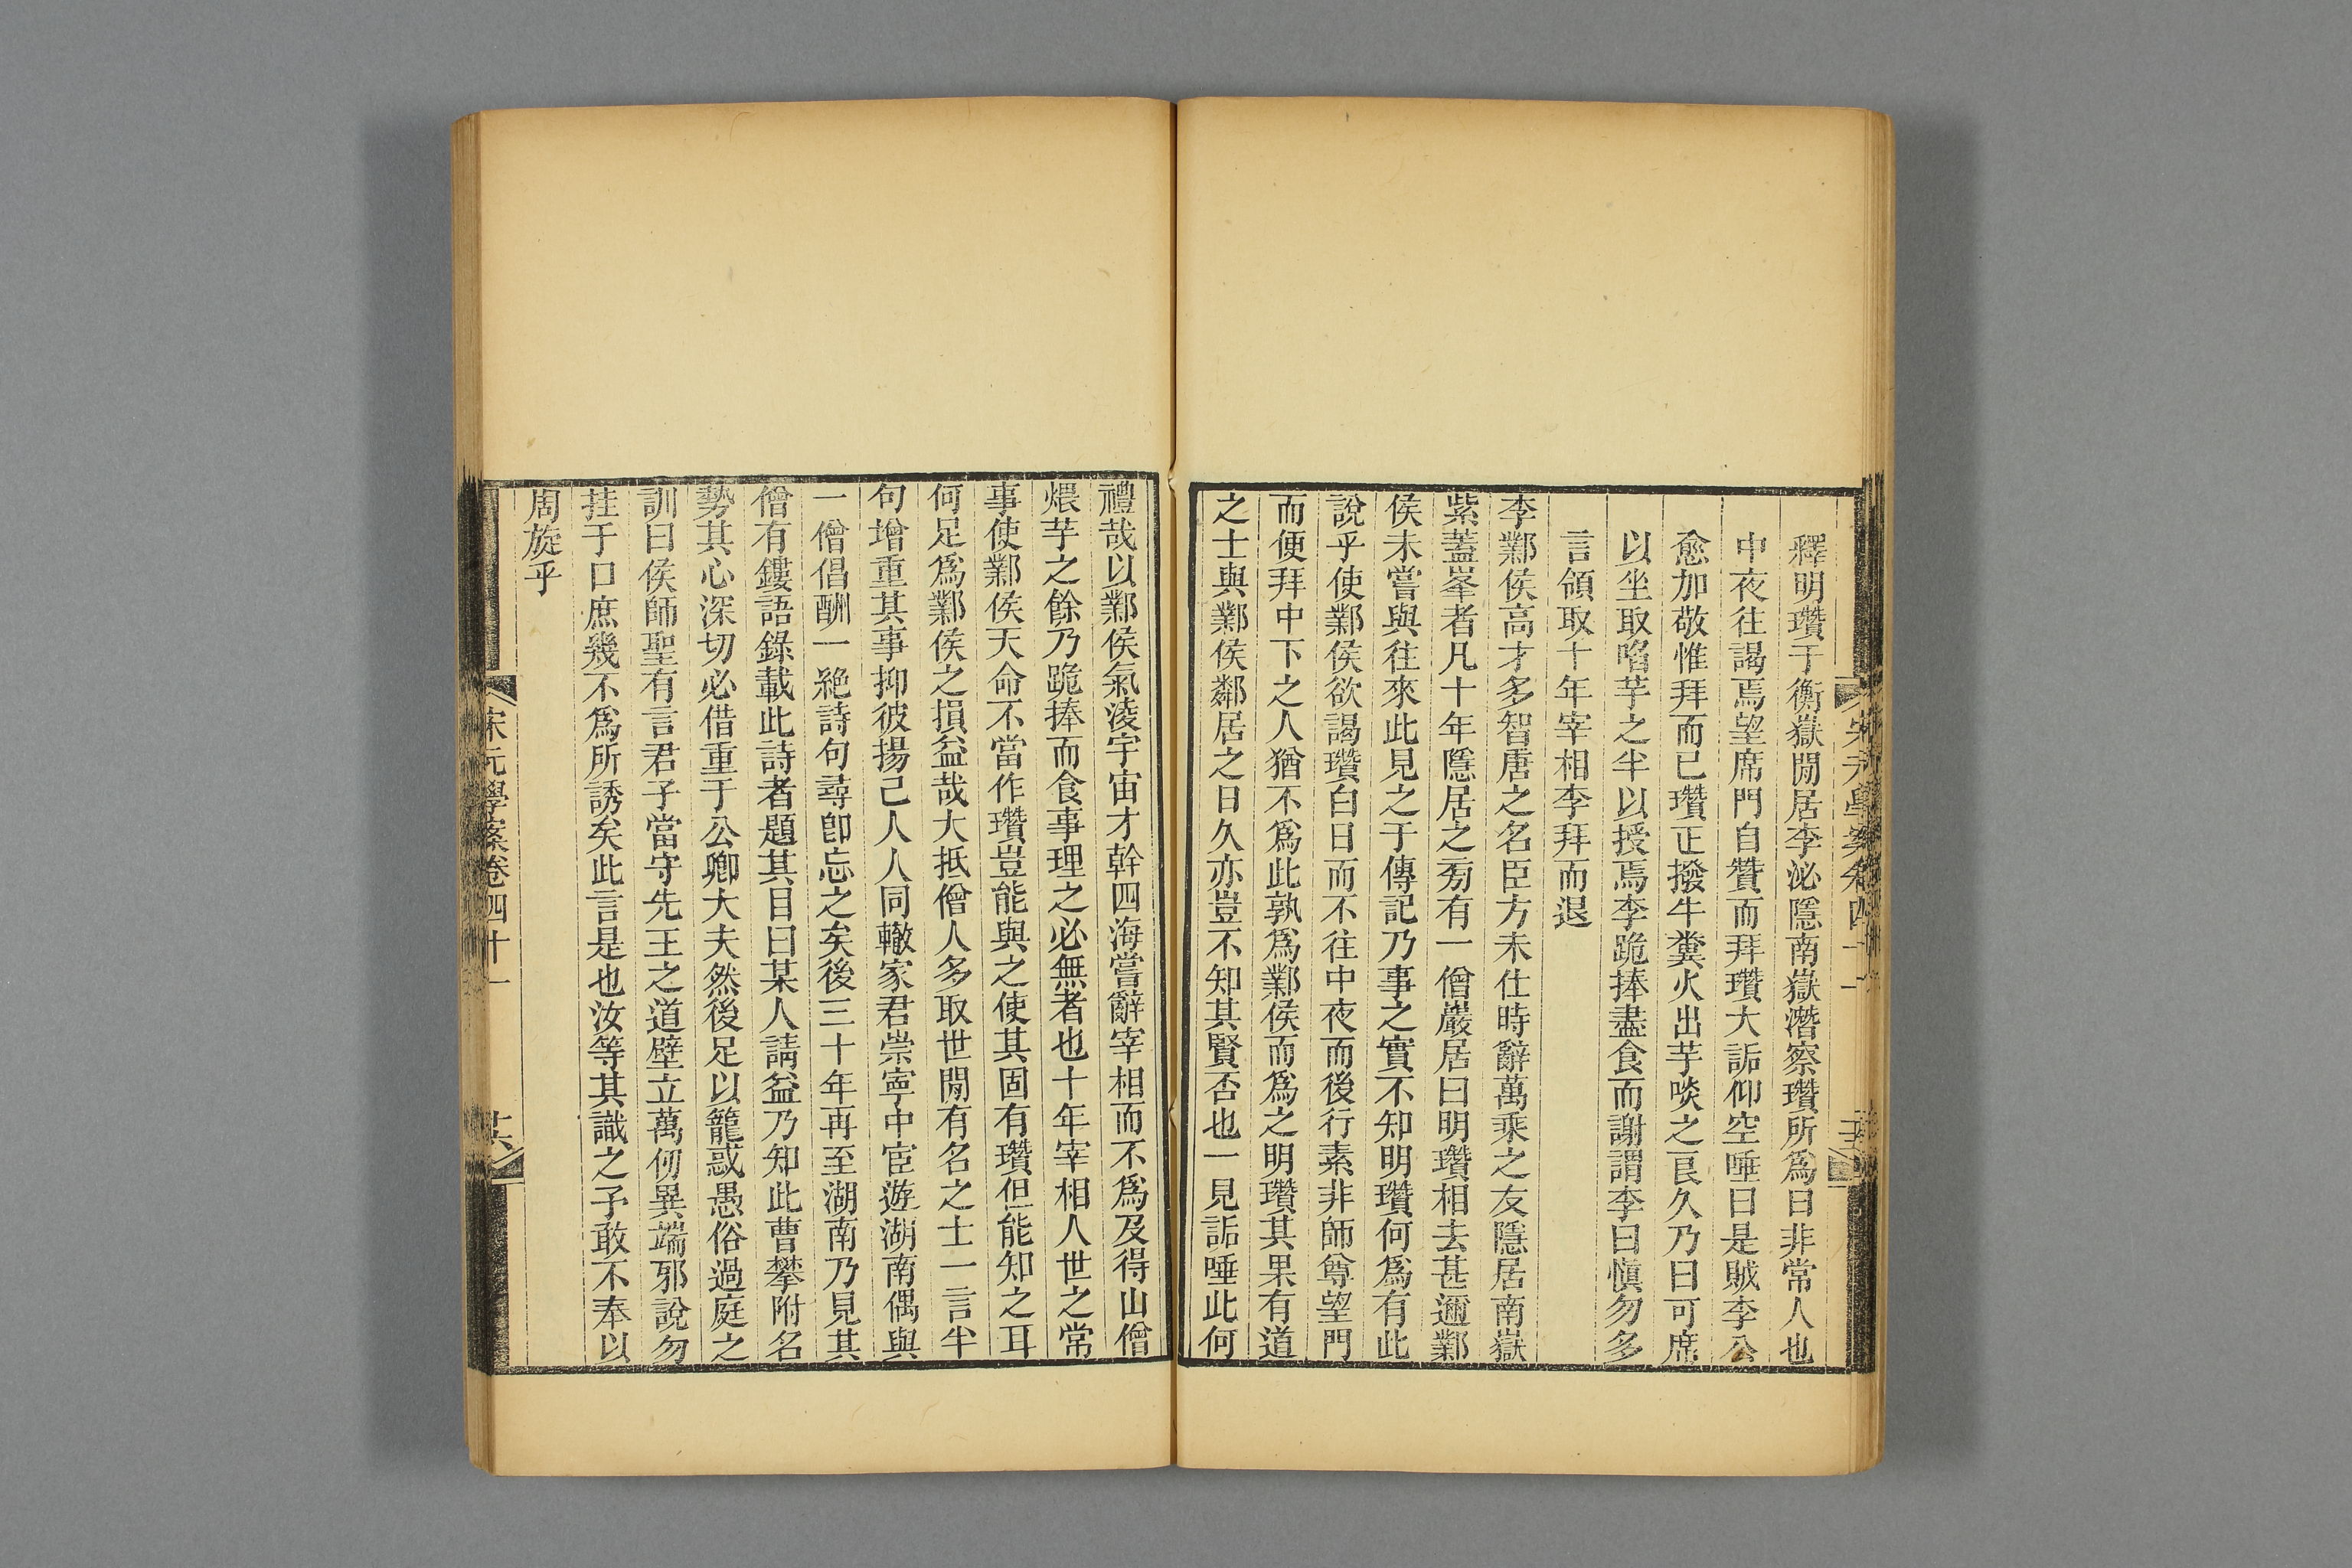 宋元學案卷四十一
釋明瓚于衡嶽閒居李泌隱南嶽潛察瓚所爲曰非常人也
中夜往謁焉望席門自贊而拜瓚大詬仰空唾曰是賊李公
愈加敬惟拜而已瓚正撥牛糞火出芋啖之良久乃曰可席
以坐取啗芋之半以授焉李跪捧盡食而謝謂李曰愼勿多
言領取十年宰相李拜而退
李鄴侯高才多智唐之名臣方未仕時辭萬乘之友隱居南嶽
紫蓋峯者凡十年隱居之旁有一僧巖居曰明瓚相去甚邇鄴
侯未嘗與往來此見之于傳記乃事之實不知明瓚何爲有此
說乎使鄴侯欲謁瓚白日而不往中夜而後行素非師尊望門
而便拜中下之人猶不爲此孰爲鄴侯而爲之明瓚其果有道
之士與鄴侯鄰居之日久亦豈不知其賢否也一見詬唾此何
禮哉以鄴侯氣淩宇宙才幹四海嘗辭宰相而不爲及得山僧
煨芋之餘乃跪捧而食事理之必無者也十年宰相人世之常
事使鄴侯天命不當作瓚豈能與之使其固有瓚但能知之耳
何足爲鄴侯之損益哉大抵僧人多取世閒有名之士一言半
句增重其事抑彼揚己人人同轍家君崇寧中宦遊湖南偶與
一僧倡酬一絕詩句尋卽忘之矣後三十年再至湖南乃見其
僧有鏤語錄載此詩者題其目曰某人請益乃知此曹攀附名
勢其心深切必借重于公卿大夫然後足以籠惑愚俗過庭之
訓曰侯師聖有言君子當守先王之道壁立萬仞異端邪說勿
挂于口庶幾不爲所誘矣此言是也汝等其識之予敢不奉以
周旋乎
宋元學案卷四十一